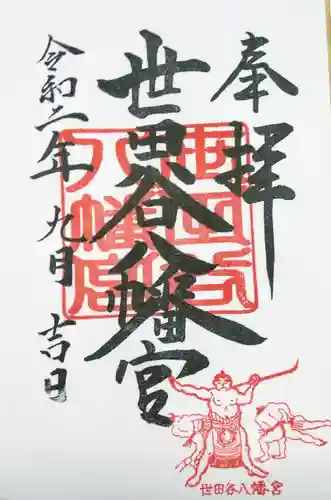 奉拝
世田谷八幡宮
令和二年九月吉日
世田谷八幡宮
世田谷八幡宮